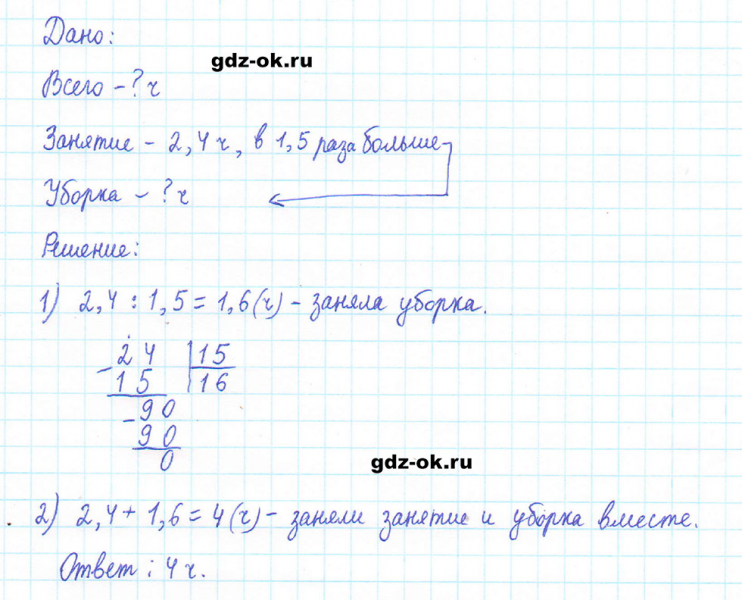 Дано:
gdz-ok.ru
Всего - ? ч
Занятие - 2,4 ч, в 1,5 раза больше
Уборка - ? ч
Решение:
1) 2,4 : 1,5 = 1,6 (ч) - заняла уборка.
- 24 | 15
15 | 16
- 90
90
0
gdz-ok.ru
2) 2,4 + 1,6 = 4 (ч) - заняли занятие и уборка вместе.
Ответ: 4 ч.